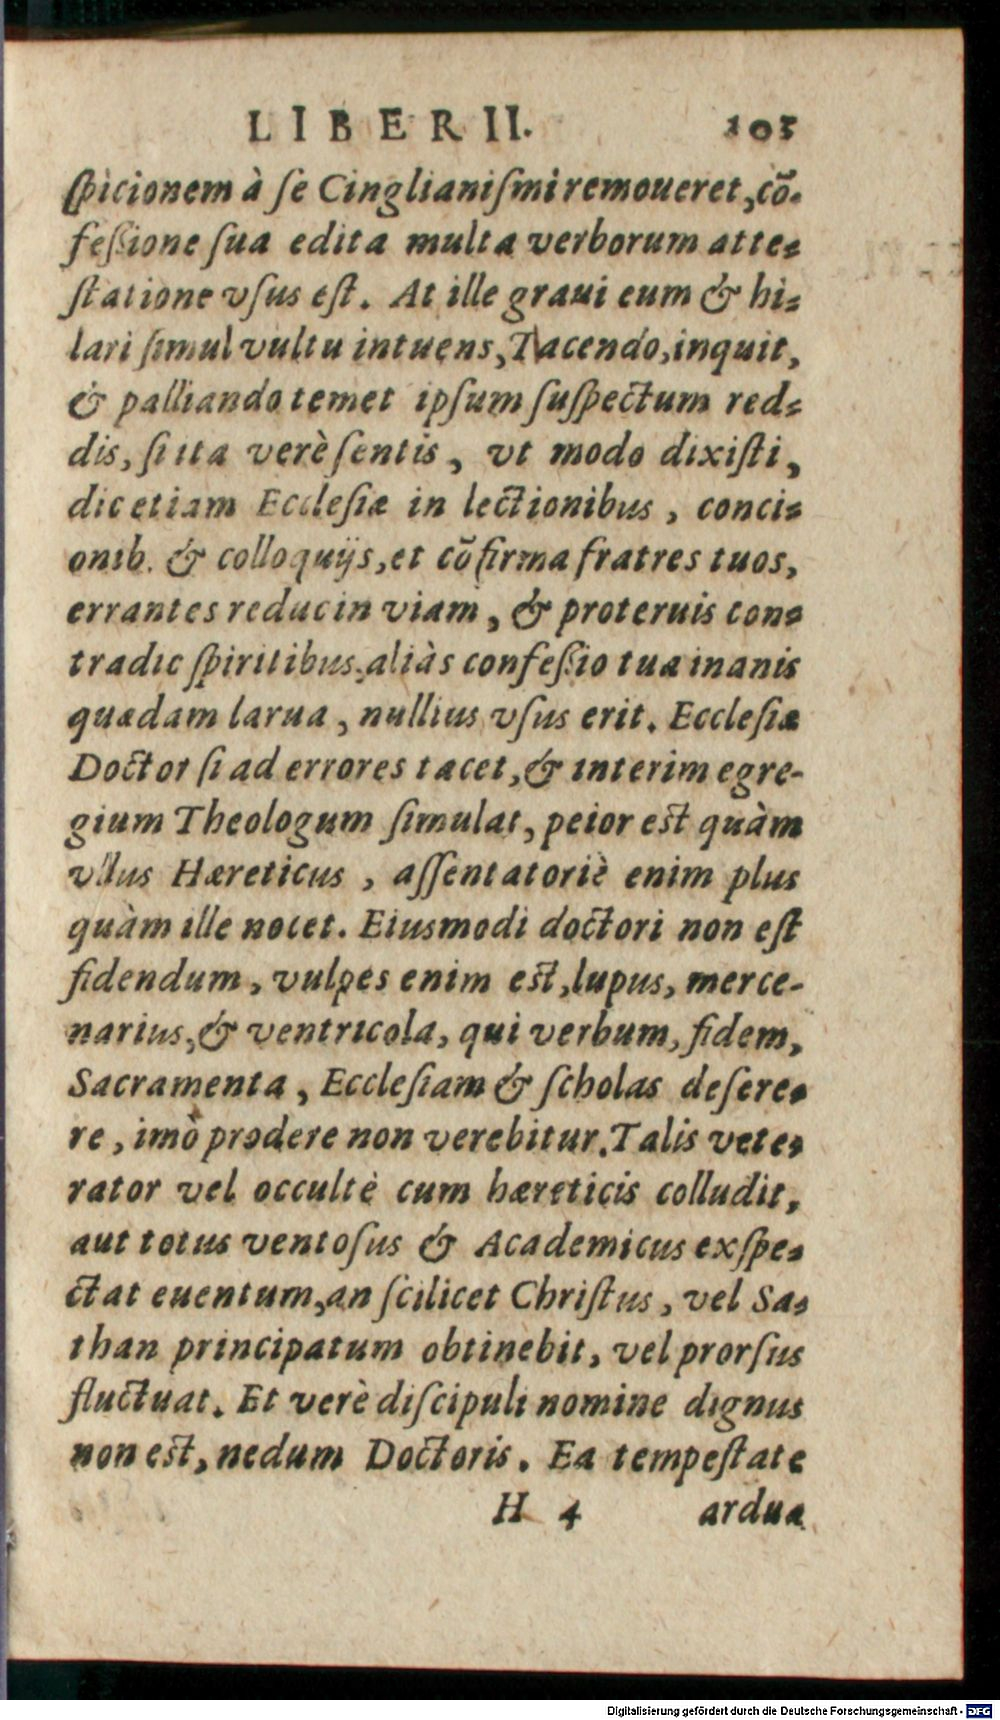 LIBER II. 105
ſpicionem à ſe Cinglianiſmi remoueret, cõ-
feſsione ſua edita multa verborum atte-
ſtatione vſus eſt. At ille graui eum & hi-
lari ſimul vultu intuens, Tacendo, inquit,
& palliando temet ipſum ſuſpectum red-
dis, ſi ita verè ſentis, vt modo dixiſti,
dic etiam Eccleſiæ in lectionibus, conci-
onib. & colloquijs, et cõfirma fratres tuos,
errantes reduc in viam, & proteruis con-
tradic ſpiritibus, aliàs confeſsio tua inanis
quædam larua, nullius vſus erit. Eccleſiæ
Doctor ſi ad errores tacet, & interim egre-
gium Theologum ſimulat, peior est quàm
vllus Hæreticus, aſſentatoriè enim plus
quàm ille nocet. Eiusmodi doctori non eſt
fidendum, vulpes enim est, lupus, merce-
narius, & ventricola, qui verbum, fidem,
Sacramenta, Eccleſiam & ſcholas deſere-
re, imò prodere non verebitur. Talis vete-
rator vel occultè cum hæreticis colludit,
aut totus ventoſus & Academicus exſpe-
ctat euentum, an ſcilicet Chriſtus, vel Sa-
than principatum obtinebit, vel prorſus
fluctuat. Et verè diſcipuli nomine dignus
non est, nedum Doctoris. Ea tempeſtate
H 4 ardua
Digitalisierung gefördert durch die Deutsche Forschungsgemeinschaft - DFG